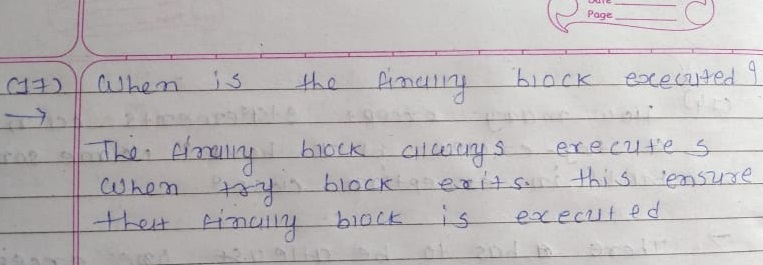 Date
Page
(17) When is the finally block executed ?
→
The finally block always executes
when try block exits. this ensure
that finally block is executed